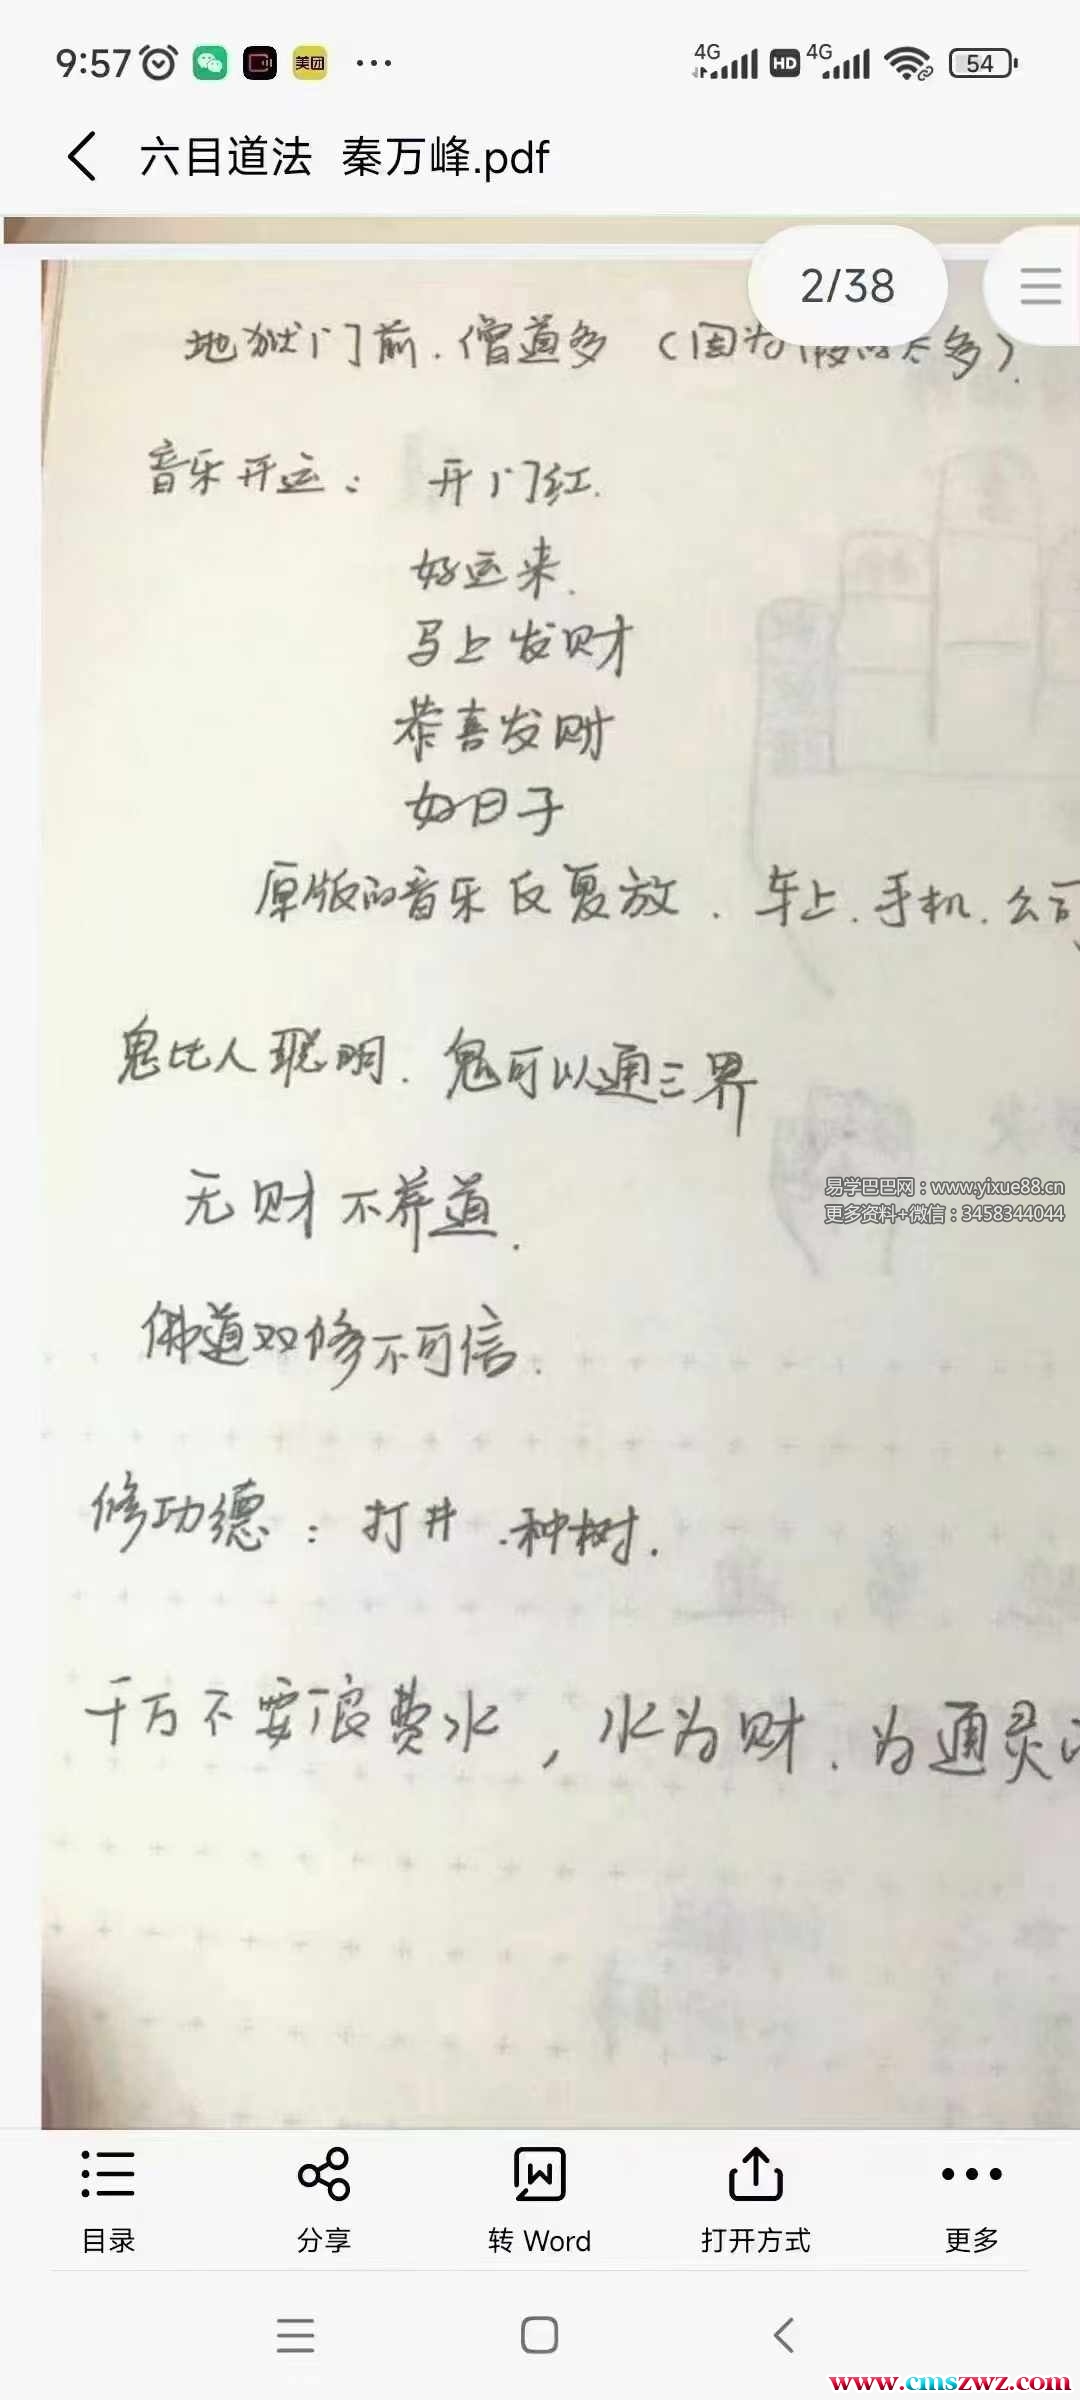 9:57 美团 ··· 4G HD 4G 54
六目道法 秦万峰.pdf
2/38
地狱门前.僧道多（因为假的太多).
音乐开运： 开门红.
好运来.
马上发财
恭喜发财
好日子
原版的音乐反复放.车上.手机.公司
鬼比人聪明.鬼可以通三界
易学巴巴网：www.yixue88.cn
无财不养道.
更多资料+微信：3458344044
佛道双修不可信.
修功德：打井.种树.
千万不要浪费水，水为财.为通灵
目录 分享 转 Word 打开方式 更多
www.cmszwz.com